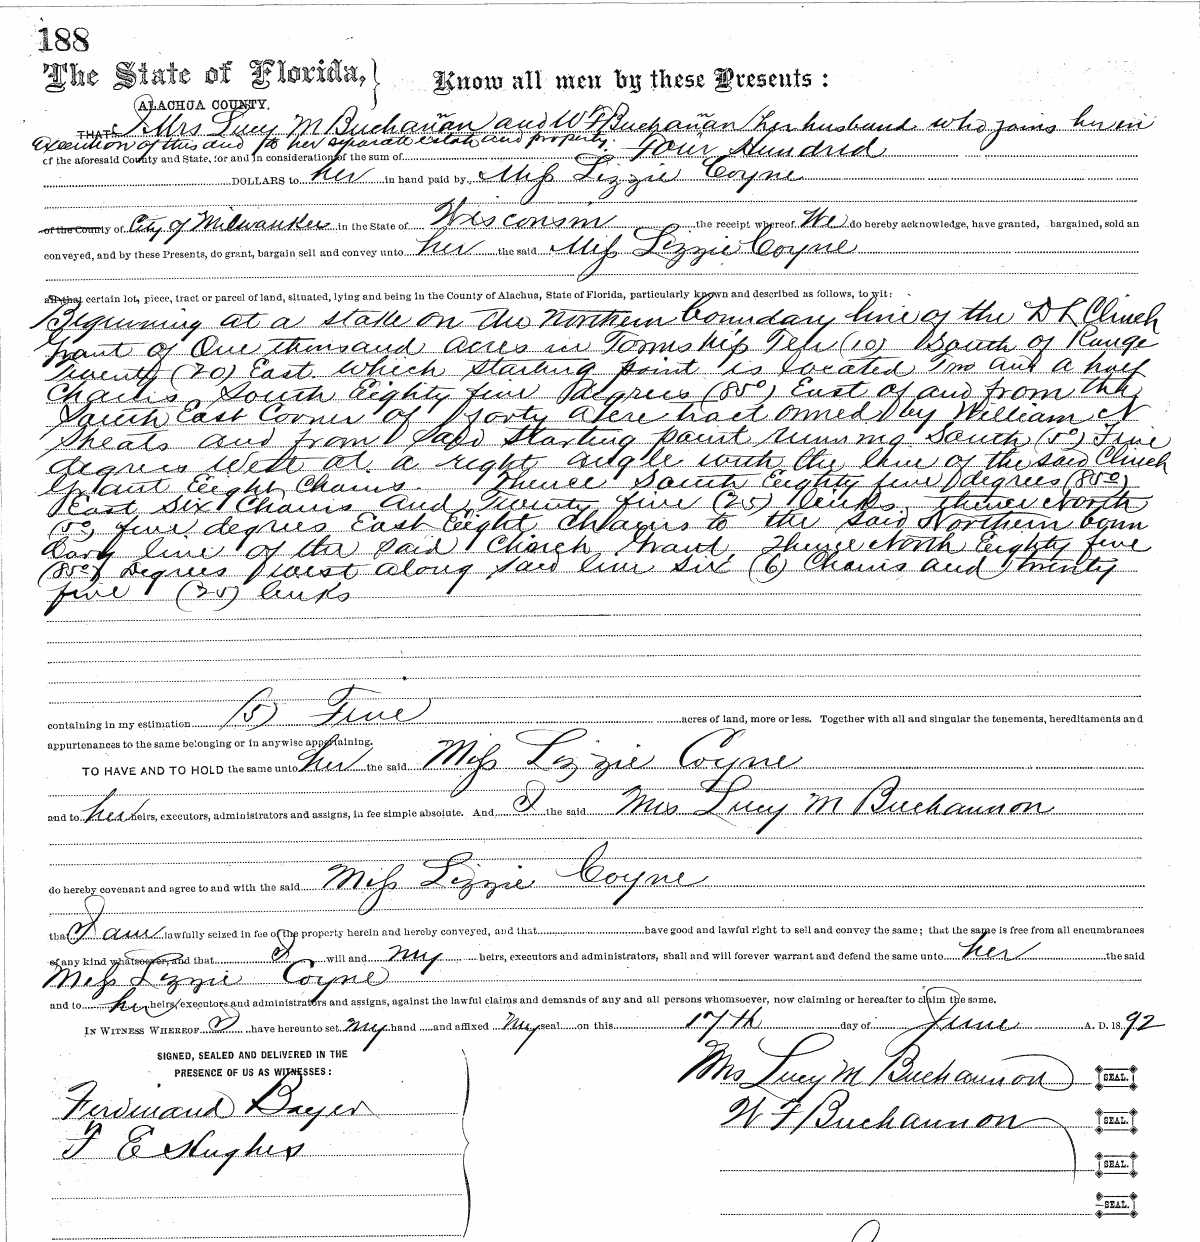 188
The State of Florida,
Know all men by these Presents:
ALACHUA COUNTY.
THAT I Mrs Lucy M Buchañan and W F Buchañan her husband who joins her in
execution of this deed to her separate estate and property.
of the aforesaid County and State, for and in consideration of the sum of Four Hundred
DOLLARS to her in hand paid by Miss Lizzie Coyne
of the County of City of Milwaukee in the State of Wisconsin the receipt whereof We do hereby acknowledge, have granted, bargained, sold an
conveyed, and by these Presents, do grant, bargain sell and convey unto her the said Miss Lizzie Coyne
all that certain lot, piece, tract or parcel of land, situated, lying and being in the County of Alachua, State of Florida, particularly known and described as follows, to wit:
Beginning at a stake on the Northern boundary line of the D L Clinch
Grant of One thousand acres in Township Ten (10) South of Range
Twenty (20) East which starting point is located Two and a half
Chains South Eighty five Degrees (85°) East of and from the
South East Corner of forty acre tract owned by William N
Sheats and from said starting point running South (5°) Five
degrees West at a right angle with the line of the said Clinch
Grant Eeight Chains. Thence South Eighty five degrees (85°)
East Six Chains and Twenty five (25) links. thence North
(5°) five degrees East Eeight Chains to the said Northern boun
dary line of the said Clinch Grant, Thence North Eighty five
(85°) Degrees west along said line six (6) Chains and Twenty
five (25) links
containing in my estimation (5) Five acres of land, more or less. Together with all and singular the tenements, hereditaments and
appurtenances to the same belonging or in anywise appertaining.
TO HAVE AND TO HOLD the same unto her the said Miss Lizzie Coyne
and to her heirs, executors, administrators and assigns, in fee simple absolute. And I the said Mrs Lucy M Buchannon
do hereby covenant and agree to and with the said Miss Lizzie Coyne
that I am lawfully seized in fee of the property herein and hereby conveyed, and that have good and lawful right to sell and convey the same; that the same is free from all encumbrances
of any kind whatsoever, and that I will and my heirs, executors and administrators, shall and will forever warrant and defend the same unto her the said
Miss Lizzie Coyne
and to her heirs, executors and administrators and assigns, against the lawful claims and demands of any and all persons whomsoever, now claiming or hereafter to claim the same.
IN WITNESS WHEREOF I have hereunto set my hand and affixed my seal on this 17th day of June A. D. 1892
SIGNED, SEALED AND DELIVERED IN THE
PRESENCE OF US AS WITNESSES:
Mrs Lucy M Buchannon SEAL.
Ferdinand Bayer
W F Buchannon SEAL.
F E Hughes
SEAL.
SEAL.